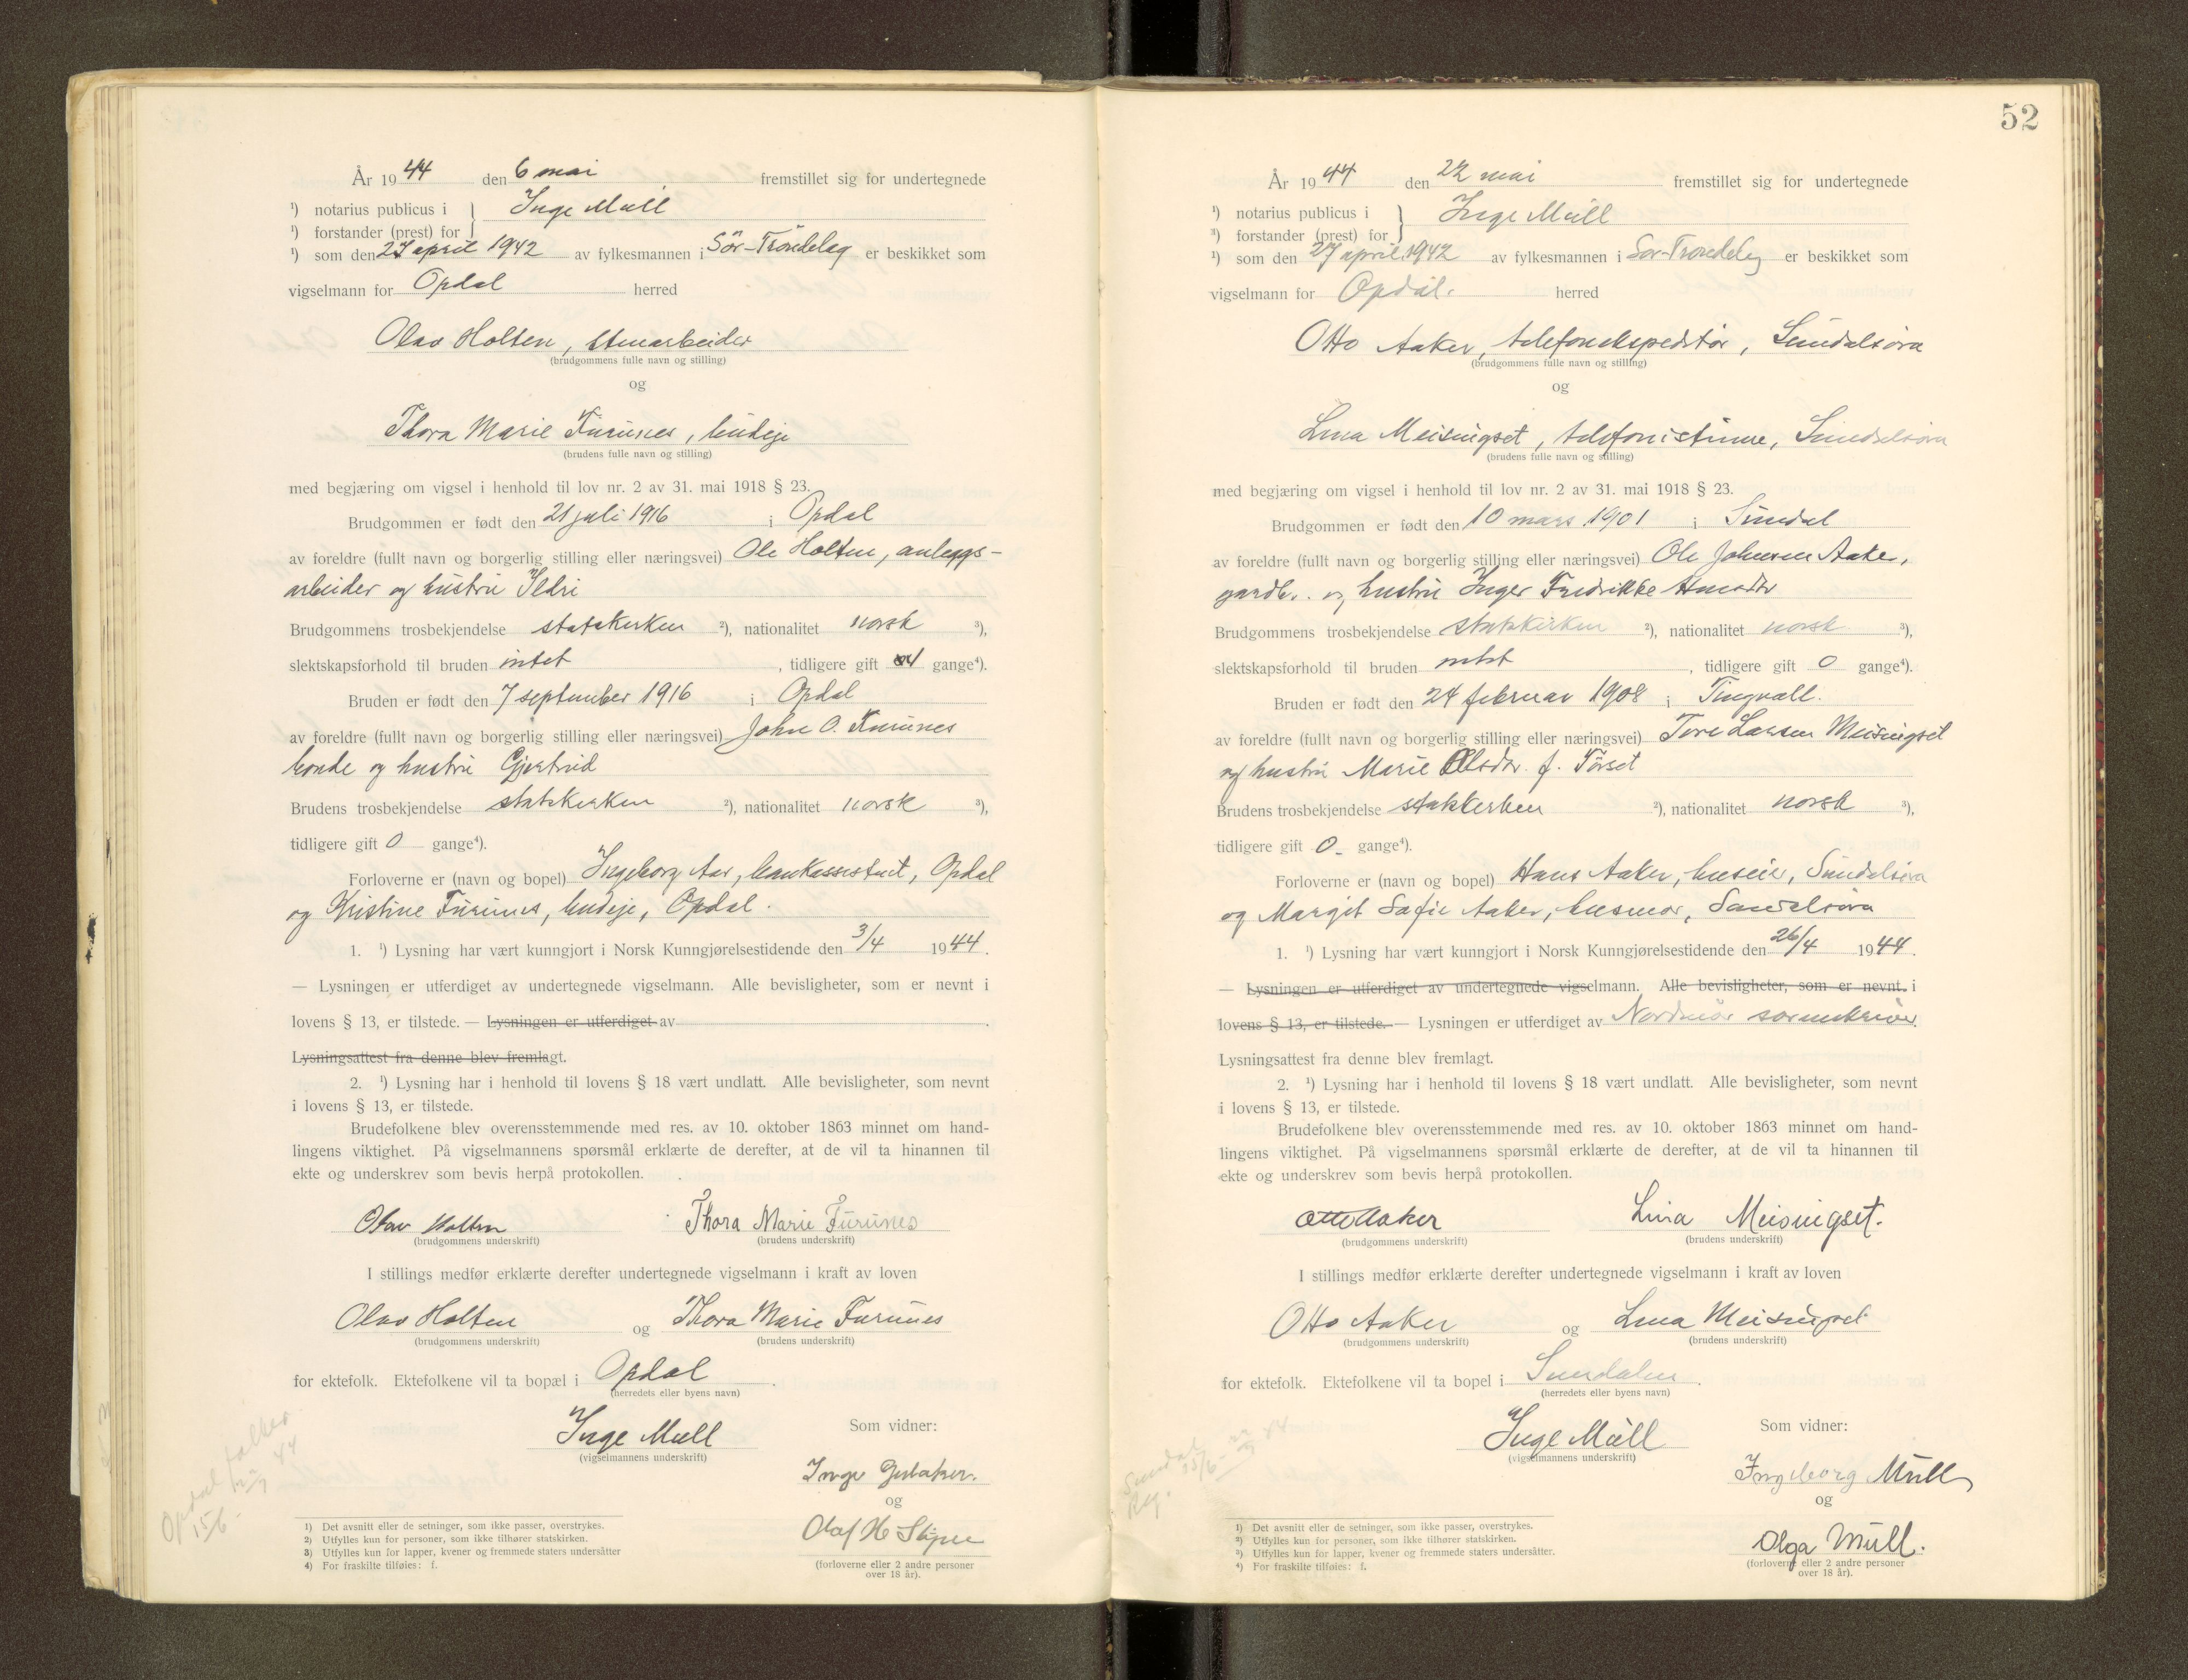 År 1944 den 6 mai fremstillet sig for undertegnede
¹) notarius publicus i } Inge Mull
¹) forstander (prest) for
¹) som den 27 april 1942 av fylkesmannen i Sör-Tröndelag er beskikket som
vigselmann for Opdal herred
Olav Holten, stenarbeider
(brudgommens fulle navn og stilling)
og
Thora Marie Furunes, budeje
(brudens fulle navn og stilling)
med begjæring om vigsel i henhold til lov nr. 2 av 31. mai 1918 § 23.
Brudgommen er født den 21 juli 1916 i Opdal
av foreldre (fullt navn og borgerlig stilling eller næringsvei) Ole Holten, anleggs-
arbeider og hustru Ildri
Brudgommens trosbekjendelse statskirken ²), nationalitet norsk ³),
slektskapsforhold til bruden intet , tidligere gift gange⁴).
Bruden er født den 7 september 1916 i Opdal
av foreldre (fullt navn og borgerlig stilling eller næringsvei) John O. Furunes
bonde og hustru Gjertrud
Brudens trosbekjendelse statskirken ²), nationalitet norsk ³),
tidligere gift 0 gange⁴).
Forloverne er (navn og bopel) Ingeborg Aar, bankassistent, Opdal
og Kristine Furunes, budeje, Opdal.
1. ¹) Lysning har vært kunngjort i Norsk Kunngjørelsestidende den 3/4 1944.
— Lysningen er utferdiget av undertegnede vigselmann. Alle bevisligheter, som er nevnt i
lovens § 13, er tilstede. — Lysningen er utferdiget av
Lysningsattest fra denne blev fremlagt.
2. ¹) Lysning har i henhold til lovens § 18 vært undlatt. Alle bevisligheter, som nevnt
i lovens § 13, er tilstede.
Brudefolkene blev overensstemmende med res. av 10. oktober 1863 minnet om hand-
lingens viktighet. På vigselmannens spørsmål erklærte de derefter, at de vil ta hinannen til
ekte og underskrev som bevis herpå protokollen.
Olav Holten Thora Marie Furunes
(brudgommens underskrift) (brudens underskrift)
I stillings medfør erklærte derefter undertegnede vigselmann i kraft av loven
Olav Holten og Thora Marie Furunes
(brudgommens underskrift) (brudens underskrift)
for ektefolk. Ektefolkene vil ta bopæl i Opdal.
(herredets eller byens navn)
Inge Mull Som vidner:
(vigselmannens underskrift)
Inge
og
Olaf H
(forloverne eller 2 andre personer
over 18 år).
Opdal 15/6 44
1) Det avsnitt eller de setninger, som ikke passer, overstrykes.
2) Utfylles kun for personer, som ikke tilhører statskirken.
3) Utfylles kun for lapper, kvener og fremmede staters undersåtter
4) For fraskilte tilføies: f.
52
År 1944 den 22 mai fremstillet sig for undertegnede
¹) notarius publicus i } Inge Mull
¹) forstander (prest) for
¹) som den 27 april 1942 av fylkesmannen i Sör-Tröndelag er beskikket som
vigselmann for Opdal. herred
Otto Aaker, telefonekspeditör, Sundalsöra
(brudgommens fulle navn og stilling)
og
Lina Meisingset, telefonistinne, Sundalsöra
(brudens fulle navn og stilling)
med begjæring om vigsel i henhold til lov nr. 2 av 31. mai 1918 § 23.
Brudgommen er født den 10 mars 1901 i Sundal
av foreldre (fullt navn og borgerlig stilling eller næringsvei) Ole Johnsen Aaker,
gardbr. og hustru Inger Fredrikke
Brudgommens trosbekjendelse statskirken ²), nationalitet norsk ³),
slektskapsforhold til bruden intet , tidligere gift 0 gange⁴).
Bruden er født den 24 februar 1908 i Tingvoll.
av foreldre (fullt navn og borgerlig stilling eller næringsvei) Tore Larsen Meisingset
og hustru Marie Olsdtr. f. Törset
Brudens trosbekjendelse statskirken ²), nationalitet norsk ³),
tidligere gift 0 gange⁴).
Forloverne er (navn og bopel) Hans Aaker, huseier, Sundalsöra
og Margit Sofie Aaker, husmor, Sundalsöra
1. ¹) Lysning har vært kunngjort i Norsk Kunngjørelsestidende den 26/4 1944.
— Lysningen er utferdiget av undertegnede vigselmann. Alle bevisligheter, som er nevnt i
lovens § 13, er tilstede. — Lysningen er utferdiget av Nordmör sorenskriver.
Lysningsattest fra denne blev fremlagt.
2. ¹) Lysning har i henhold til lovens § 18 vært undlatt. Alle bevisligheter, som nevnt
i lovens § 13, er tilstede.
Brudefolkene blev overensstemmende med res. av 10. oktober 1863 minnet om hand-
lingens viktighet. På vigselmannens spørsmål erklærte de derefter, at de vil ta hinannen til
ekte og underskrev som bevis herpå protokollen.
Otto Aaker Lina Meisingset.
(brudgommens underskrift) (brudens underskrift)
I stillings medfør erklærte derefter undertegnede vigselmann i kraft av loven
Otto Aaker og Lina Meisingset
(brudgommens underskrift) (brudens underskrift)
for ektefolk. Ektefolkene vil ta bopel i Sundalen.
(herredets eller byens navn)
Inge Mull Som vidner:
(vigselmannens underskrift)
Ingeborg Mull
og
Olga Mull.
(forloverne eller 2 andre personer
over 18 år).
Sundal 15/6 44
1) Det avsnitt eller de setninger, som ikke passer, overstrykes.
²) Utfylles kun for personer, som ikke tilhører statskirken.
³) Utfylles kun for lapper, kvener og fremmede staters undersåtter.
⁴) For fraskilte tilføies: f.